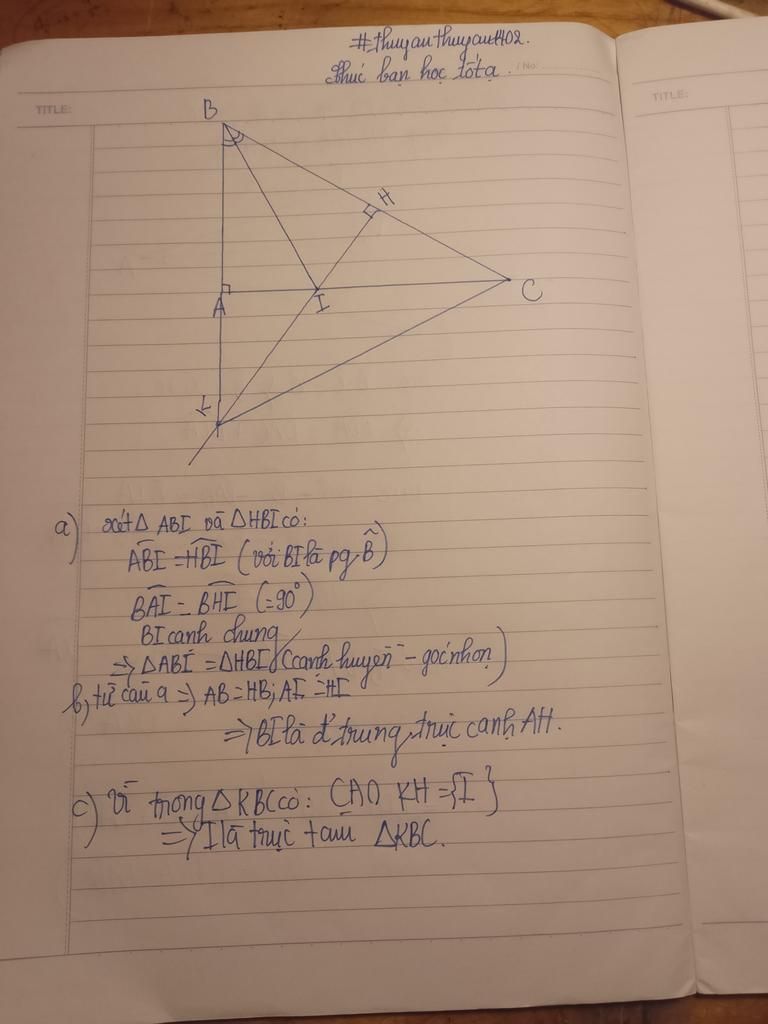 #thuyanthuyan1402.
chúc bạn học tốt ạ.
/ No:
TITLE:
TITLE:
B
H
A
I
C
K
a) xét Δ ABI và Δ HBI có:
ABI = HBI (với BI là pg B̂)
BAI = BHI (=90°)
BI cạnh chung
=> Δ ABI = Δ HBI (cạnh huyền - góc nhọn)
b, từ câu a => AB = HB; AI = HI
=> BI là đ' trung trực cạnh AH.
c) Vì trong Δ KBC có: CA ∩ KH = {I}
=> I là trực tâm Δ KBC.